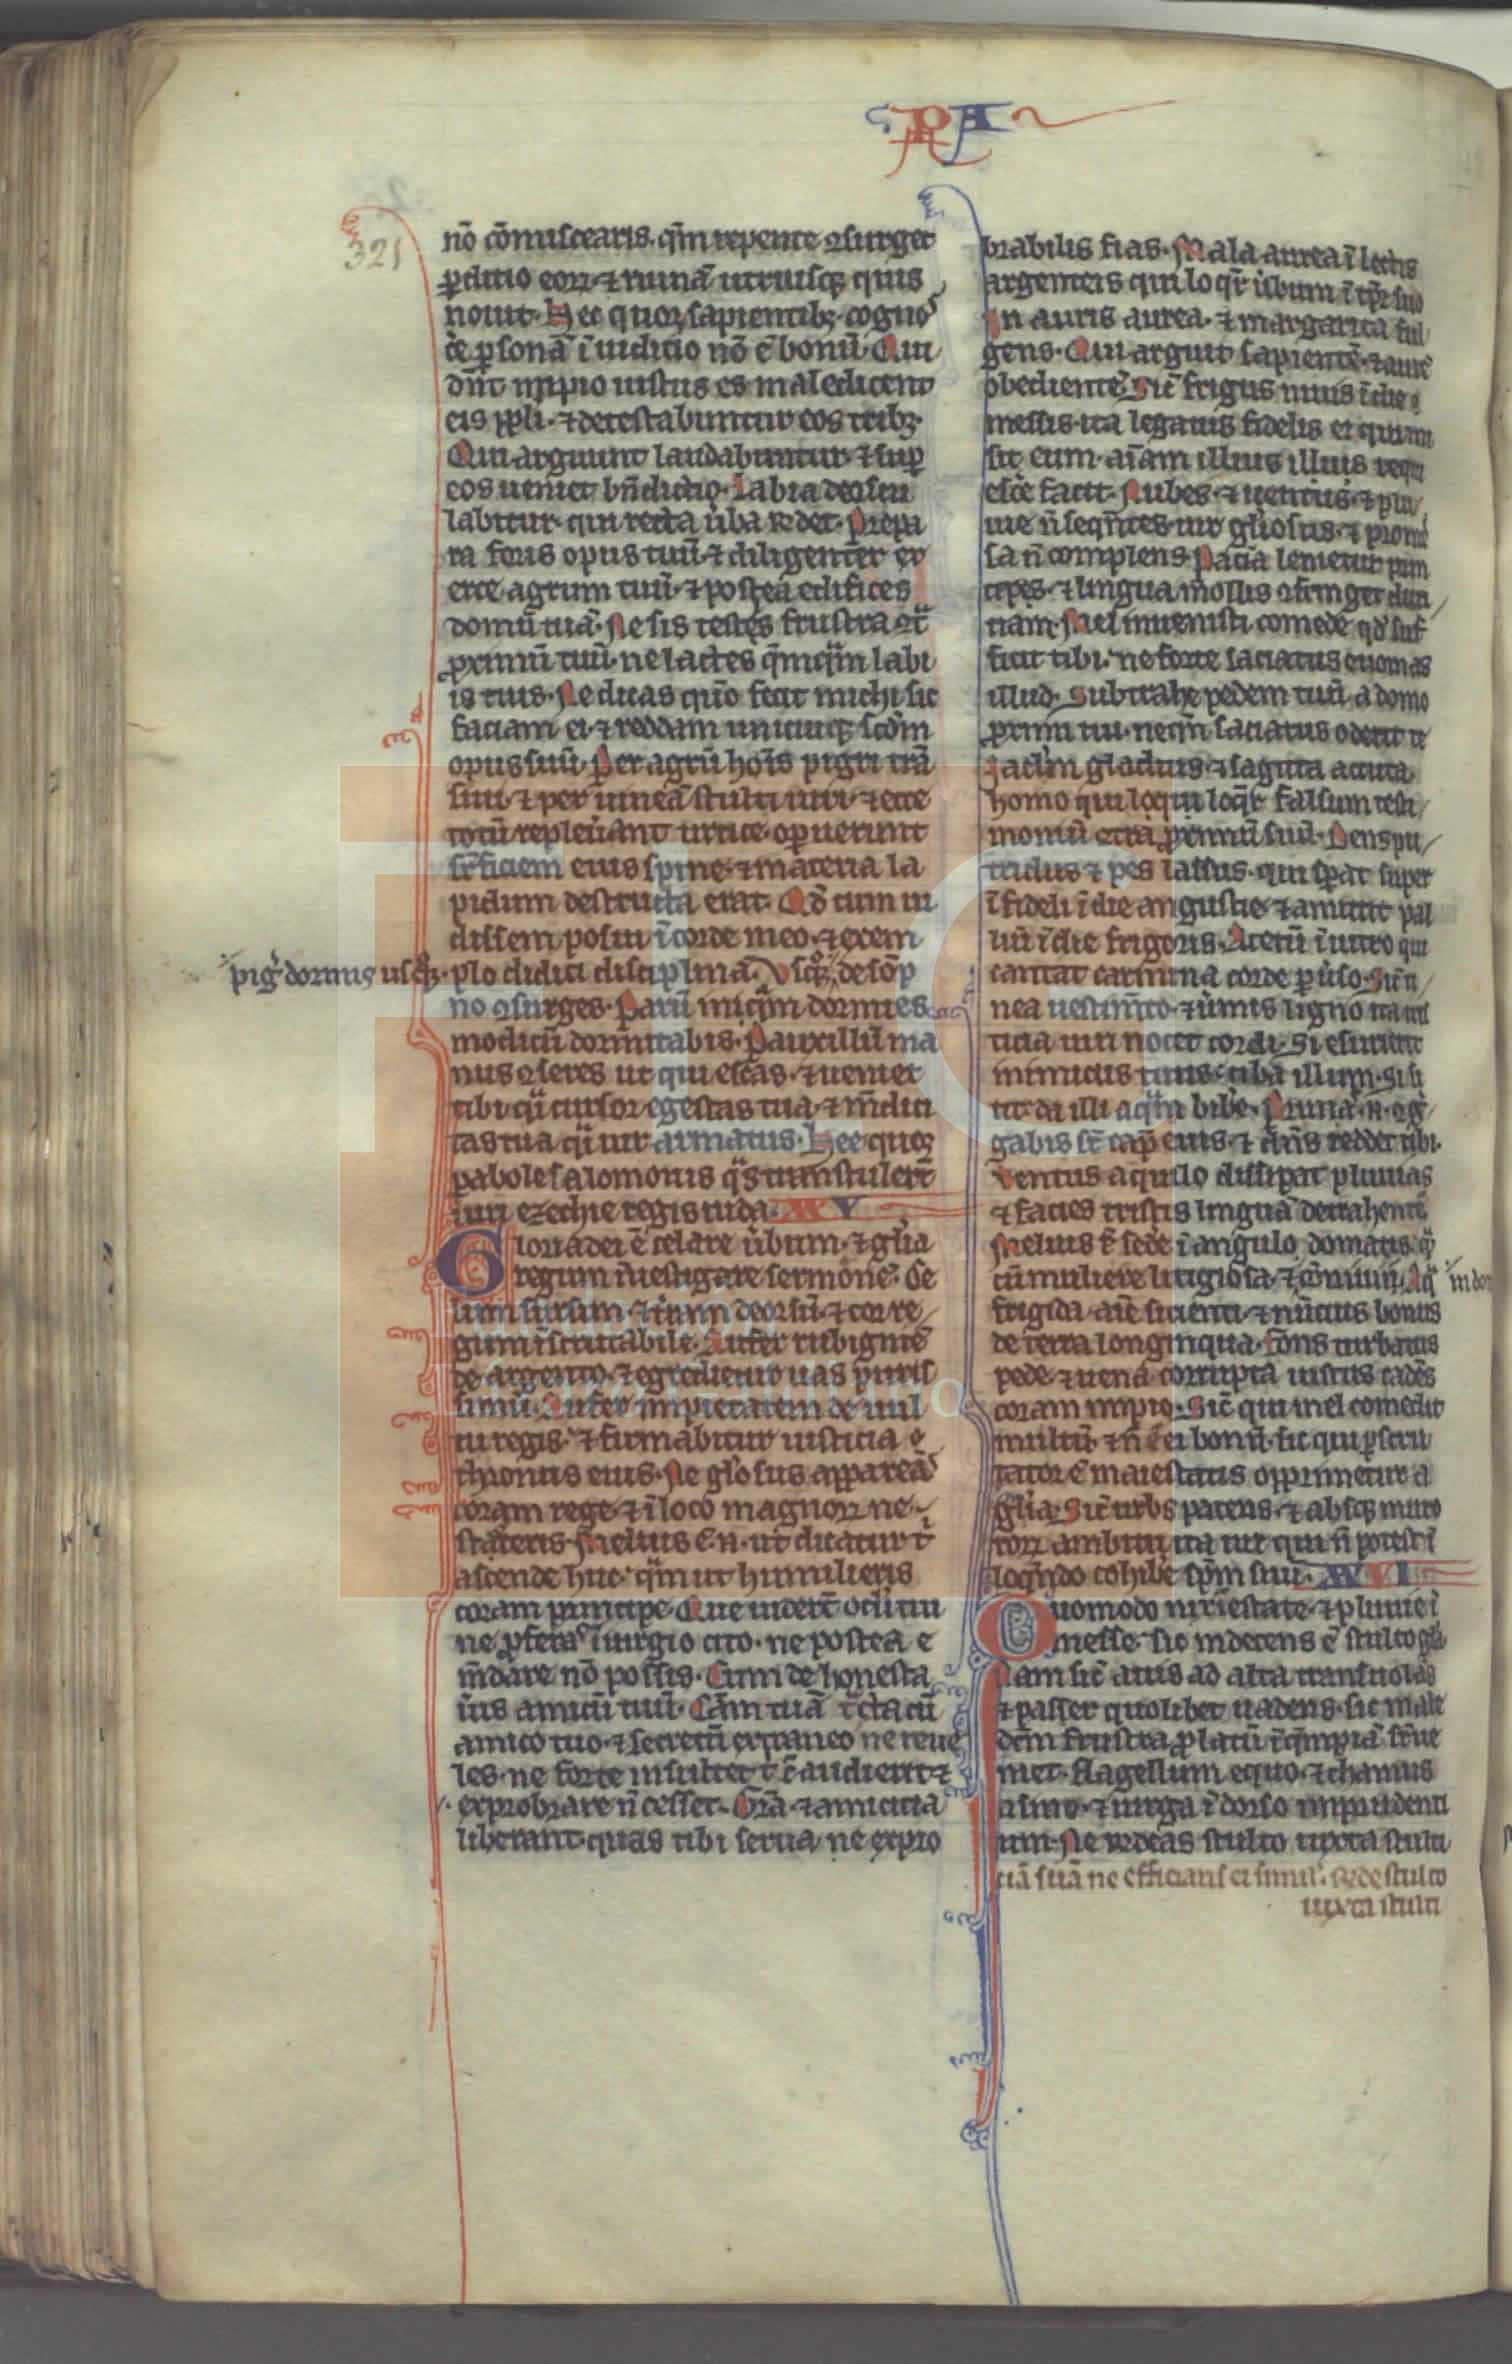 PA
321
nō cōmiscearis. qm̄ repente ꝯsurget
ꝑditio eoꝝ ⁊ ruinā utriusqꝫ quis
nouit. Hec quoqꝫ sapientibꝫ. cogno
c̄e ꝑsonā ī iuditio nō ē bonū. Qui
dn̄t īpio iustus es maledicent
eis ppl̄i. ⁊ detestabuntur eos tribꝫ.
Qui arguunt laudabuntur. ⁊ suꝑ
eos ueniet bn̄dictio. Labia deoscu
labitur. qui recta ūba r̄det. Prepa
ra foris opus tuū. ⁊ diligenter ex
erce agrum tuū. ⁊ postea edifices
domū tuā. Ne sis testis frustra ꝯt̄
ꝓximū tuū. ne lactes q̄mqᵃm labi
is tuis. Ne dicas quō fecit michi sic
faciam ei. ⁊ reddam unicuiqꝫ scdm̄
opus suū. Per agrū hoīs pigri trā
siui. ⁊ per uineā stulti uiri. ⁊ ecce
totū repleūant urtice. oꝑuerunt
suꝑficiem eius spine. ⁊ materia la
pidum destructa erat. Qd̄ cum ui
dissem posui ī corde meo. ⁊ exem
pig̾ dormis usqꝫ. plo didici disciplinā. Vsqꝫ quo de sōp
no ꝯsurges. Parū inqᵃm dormies
modicū dormitabis. Pauxillū ma
nus ꝯseres ut quiescas. ⁊ ueniet
tibi qᵃ cursor egestas tua. ⁊ m̄dici
tas tua qᵃ uir armatus. Hec quoqꝫ
ꝑabole salomonis qᵃs transtuler̄t
uiri ezechie regis iuda. XXV
Gloria dei ē celare ūbum. ⁊ gl̄ia
regum īuestigare sermonē. Ce
lum sursum. ⁊ t̄ra deorsū. ⁊ cor re
gum īscrutabile. Aufer rubiginē
de argento. ⁊ egredietur uas puris
simū. Aufer impietatem de uul
tu regis. ⁊ firmabitur iusticia
thronus eius. Ne gl̄osus appareas
coram rege. ⁊ ī loco magnoꝝ ne
steteris. Melius ē. n. ut dicatur t̄
ascende huc. qᵃm ut humilieris
coram principe. Que uider̄t oculi tui
ne ꝓferas ī iurgio cito. ne postea e
m̄dare nō possis. Cum de honesta
ūis amicū tuū. Cām tuā t̄cta cū
amico tuo. ⁊ secretū ext̄raneo ne reue
les. ne forte insultet t̄ cū audierit ⁊
exprobrare n̄ cesset. Grā. ⁊ amicicia
liberant. quas tibi serua ne expro
brabilis fias. Mala aurea ī lectis
argenteis qui loqᵗr ūbum ī tp̄r suo
In auris aurea. ⁊ margarita ful
gens. Qui arguit sapientē. ⁊ aurē
obedientē. Sic̄ frigus niuis ī die
messis. ita legatus fidelis ei qui mi
sit eum. aīam illius illius requi
esc̄e facit. Nubes. ⁊ uentus. ⁊ plu
uie n̄ seqn̄tes. uir gl̄iosus. ⁊ promis
sa n̄ complens. Paciā lenietur prin
ceps. ⁊ lingua mollis ꝯfringet duri
tiam. Mel inuenisti comede qd̄ suf
ficit tibi. ne forte saciatus euomas
illud. Subtrahe pedem tuū. a domo
ꝓximi tui. neqn̄ saciatus oderit te
Iaclm̄ gladius. ⁊ sagitta acuta.
homo qui loqui loqᵗr falsum testi
moniū ꝯtra ꝓximū suū. Dens pu
tridus ⁊ pes lassus. qui sꝑat super
īfideli ī die angustie. ⁊ amittit pal
liū ī die frigoris. Acetū ī uitro qui
cantat carmina corde pūso. Sic̄ ti
nea uestim̄to. ⁊ ūmis ligno ita tris
ticia uiri nocet cordi. Si esurierit
inimicus tuus. ciba illum. si si
tit da illi aqᵃm bibe. Prunā. n. ꝯg̾
gabis sr̄ caꝑ eius. ⁊ dn̄s reddet tibi.
Ventus aquilo dissipat pluuias
⁊ facies tristis linguā detrahentē
Melius ē sede ī angulo domatis qᵃ
cū muliere litigiosa. ⁊ ꝯmuni. Aqᵃ in do
frigida aīe sicienti. ⁊ nūcius bonus
de terra longinqua. Fons turbatus
pede. ⁊ uena corrupta iustus cadēs
coram impio. Sic̄ qui mel comedit
multū. ⁊ n̄ ē ei bonū. sic qui ꝑscru
tator ē maiestatis opprimetur a
gl̄ia. Sic̄ urbs patens. ⁊ absqꝫ muro
roꝝ ambitu ita uir qui n̄ potest ī
loqn̄do cohibē spm̄ suū. XXVI
Quomodo nix ī estate. ⁊ pluuie ī
messe. sic indecens ē stulto gl̄ia
Nam sic̄ auis ad alta transuolās
⁊ passer quolibet uadens. sic male
dcm̄ frustra ꝓlatū ī qm̄piā sr̄ue
niet. Flagellum equo. ⁊ chamus
asino. ⁊ uirga ī dorso imprudenti
um. Ne r̄deas stulto iuxta stulti
ciā suā ne efficiaris ei simil̾. R̄de stulto
iuxta stulti